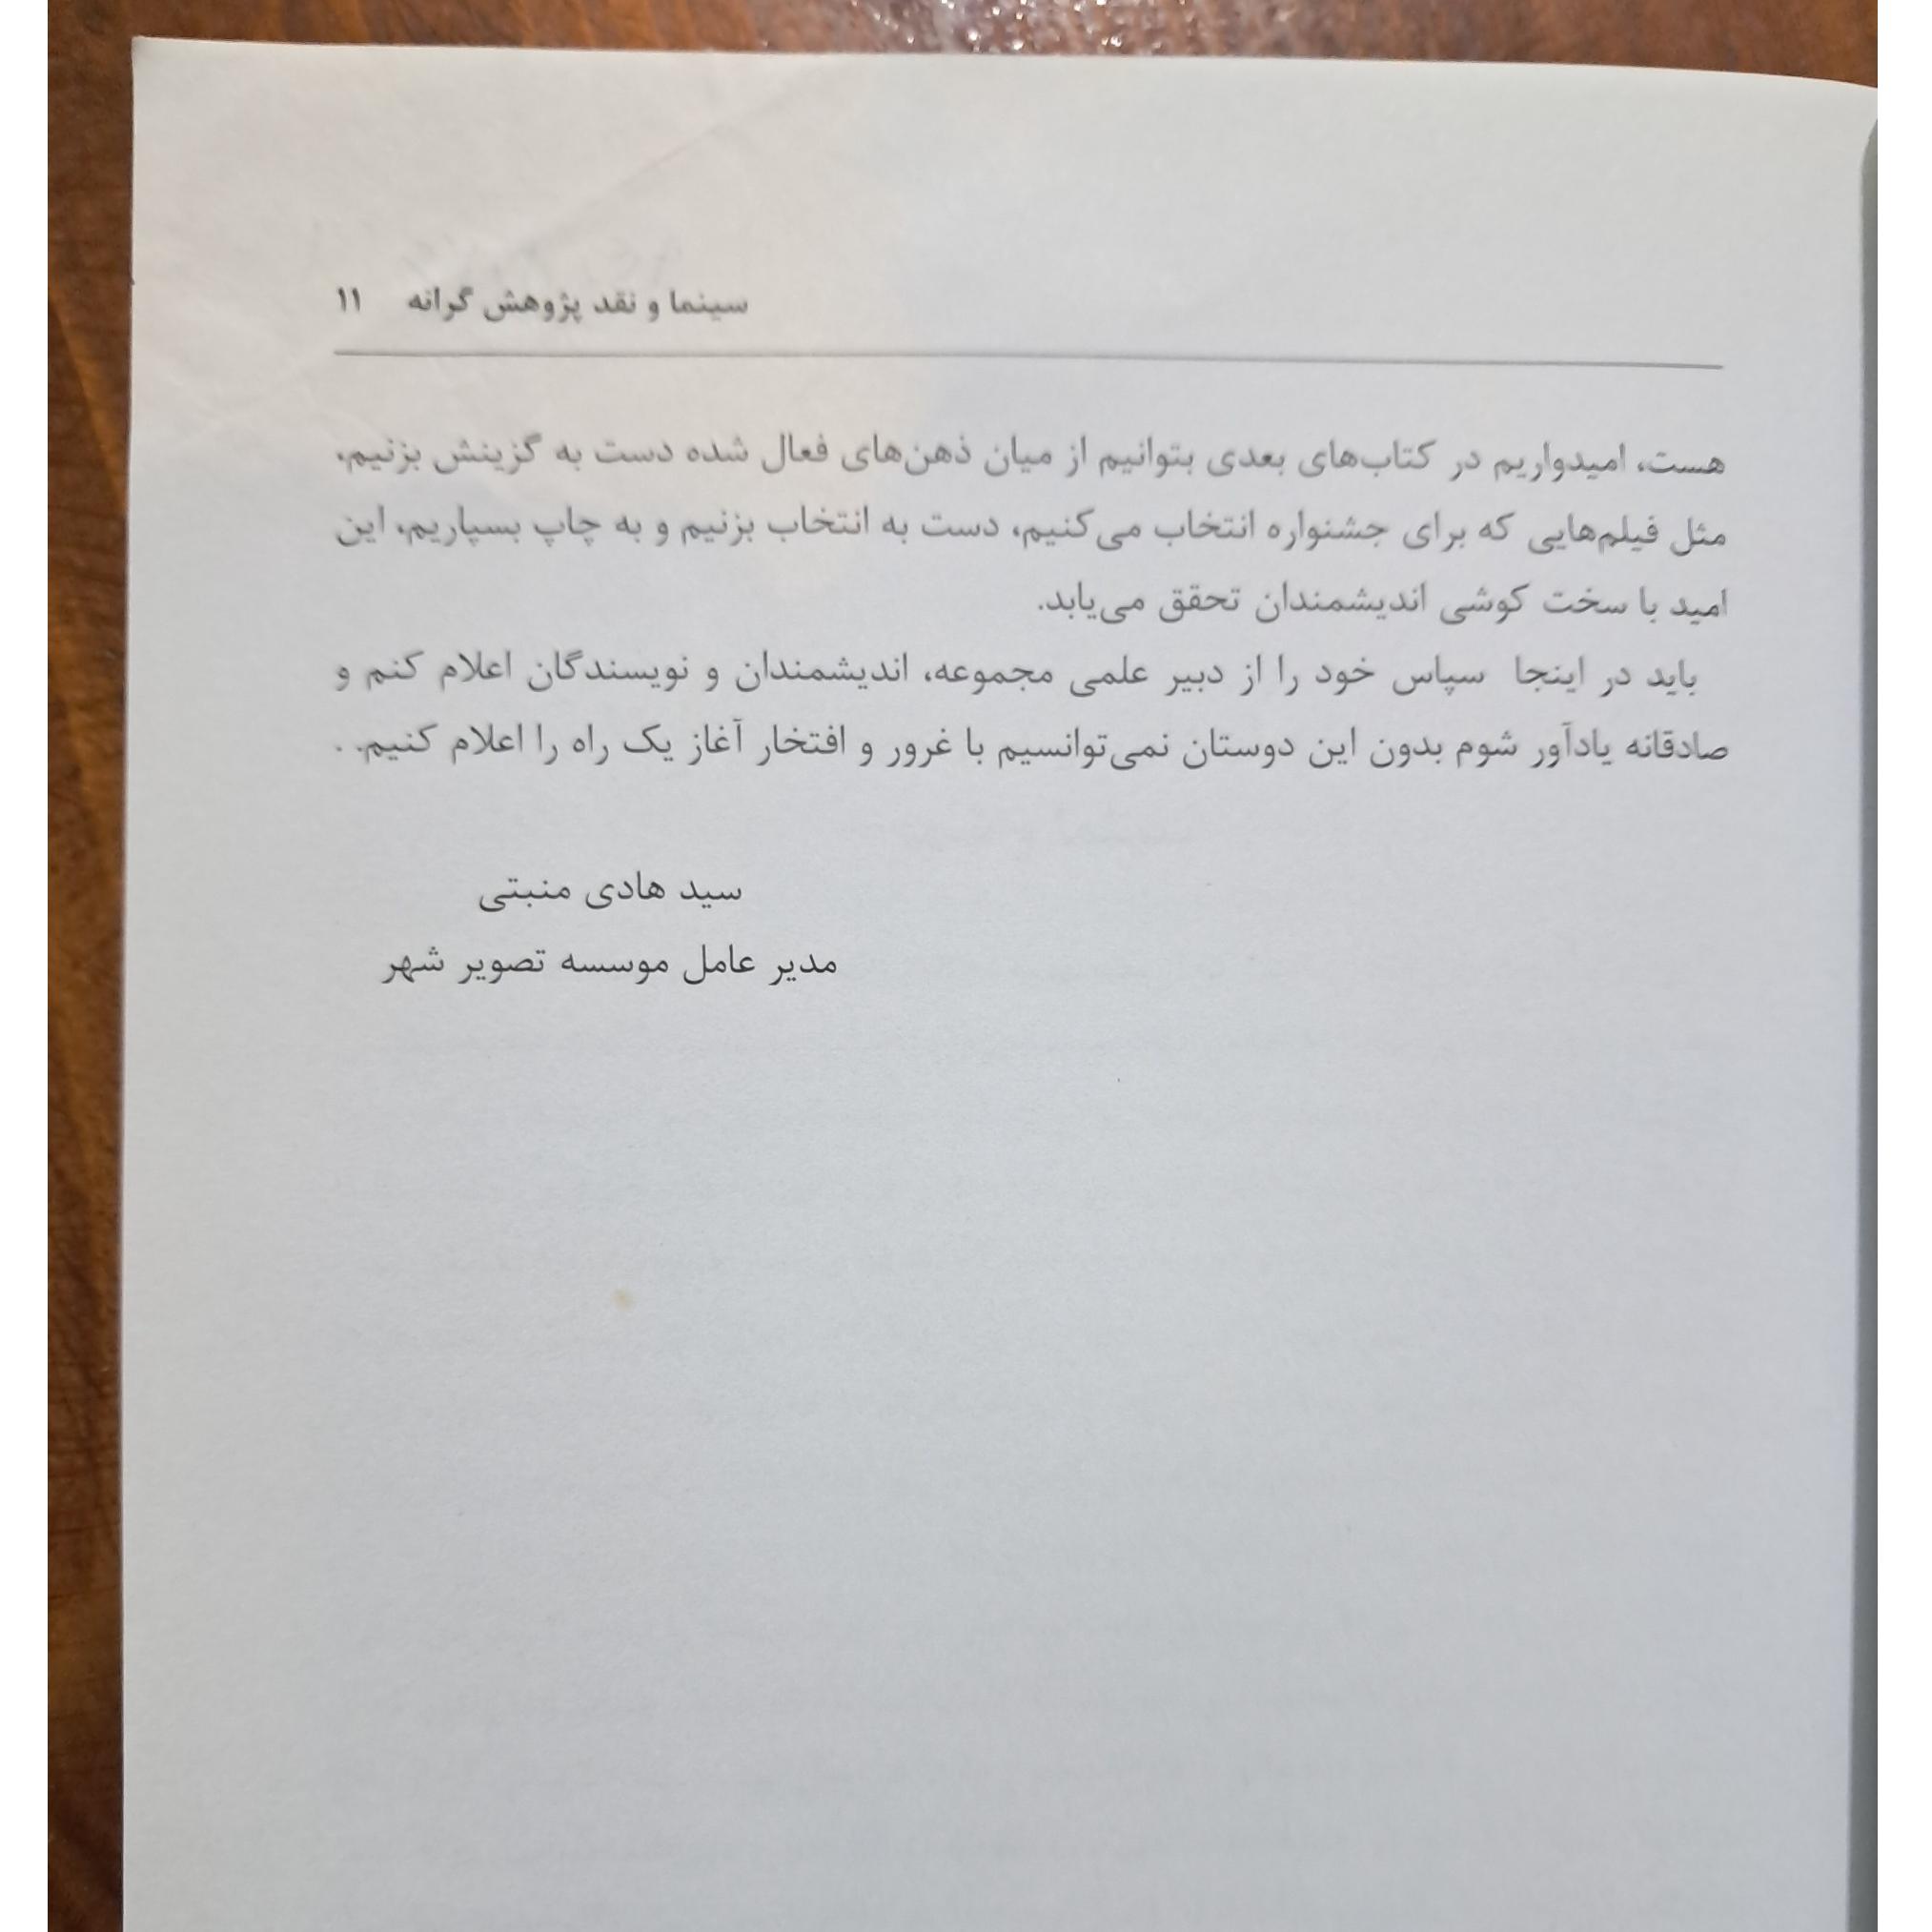 سینما و نقد پژوهش گرانه ۱۱
هست، امیدواریم در کتاب‌های بعدی بتوانیم از میان ذهن‌های فعال شده دست به گزینش بزنیم،
مثل فیلم‌هایی که برای جشنواره انتخاب می‌کنیم، دست به انتخاب بزنیم و به چاپ بسپاریم، این
امید با سخت کوشی اندیشمندان تحقق می‌یابد.
باید در اینجا سپاس خود را از دبیر علمی مجموعه، اندیشمندان و نویسندگان اعلام کنم و
صادقانه یادآور شوم بدون این دوستان نمی‌توانسیم با غرور و افتخار آغاز یک راه را اعلام کنیم. .
سید هادی منبتی
مدیر عامل موسسه تصویر شهر